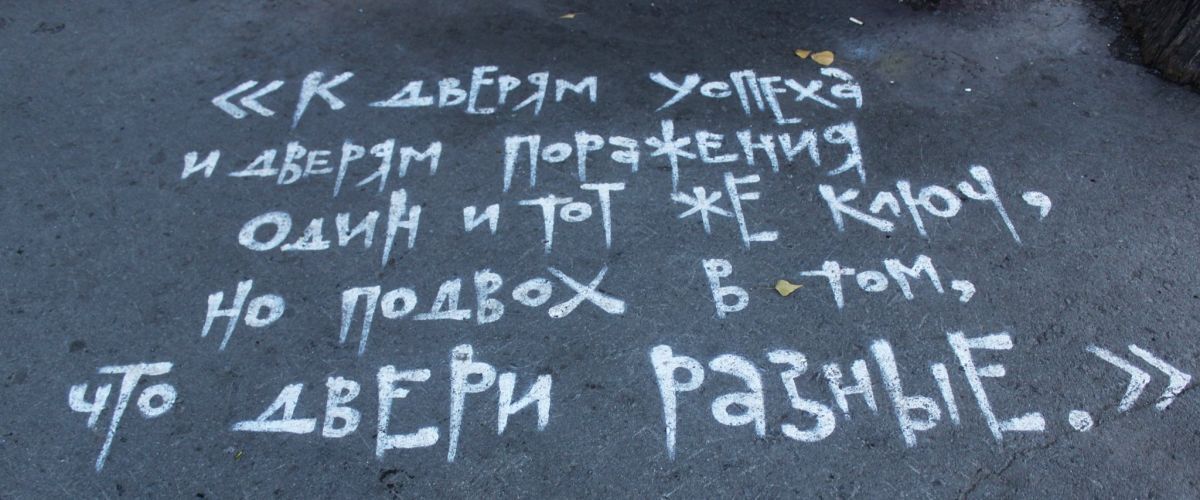 «К дверям успеха
и дверям поражения
один и тот же ключ,
но подвох в том,
что двери разные.»